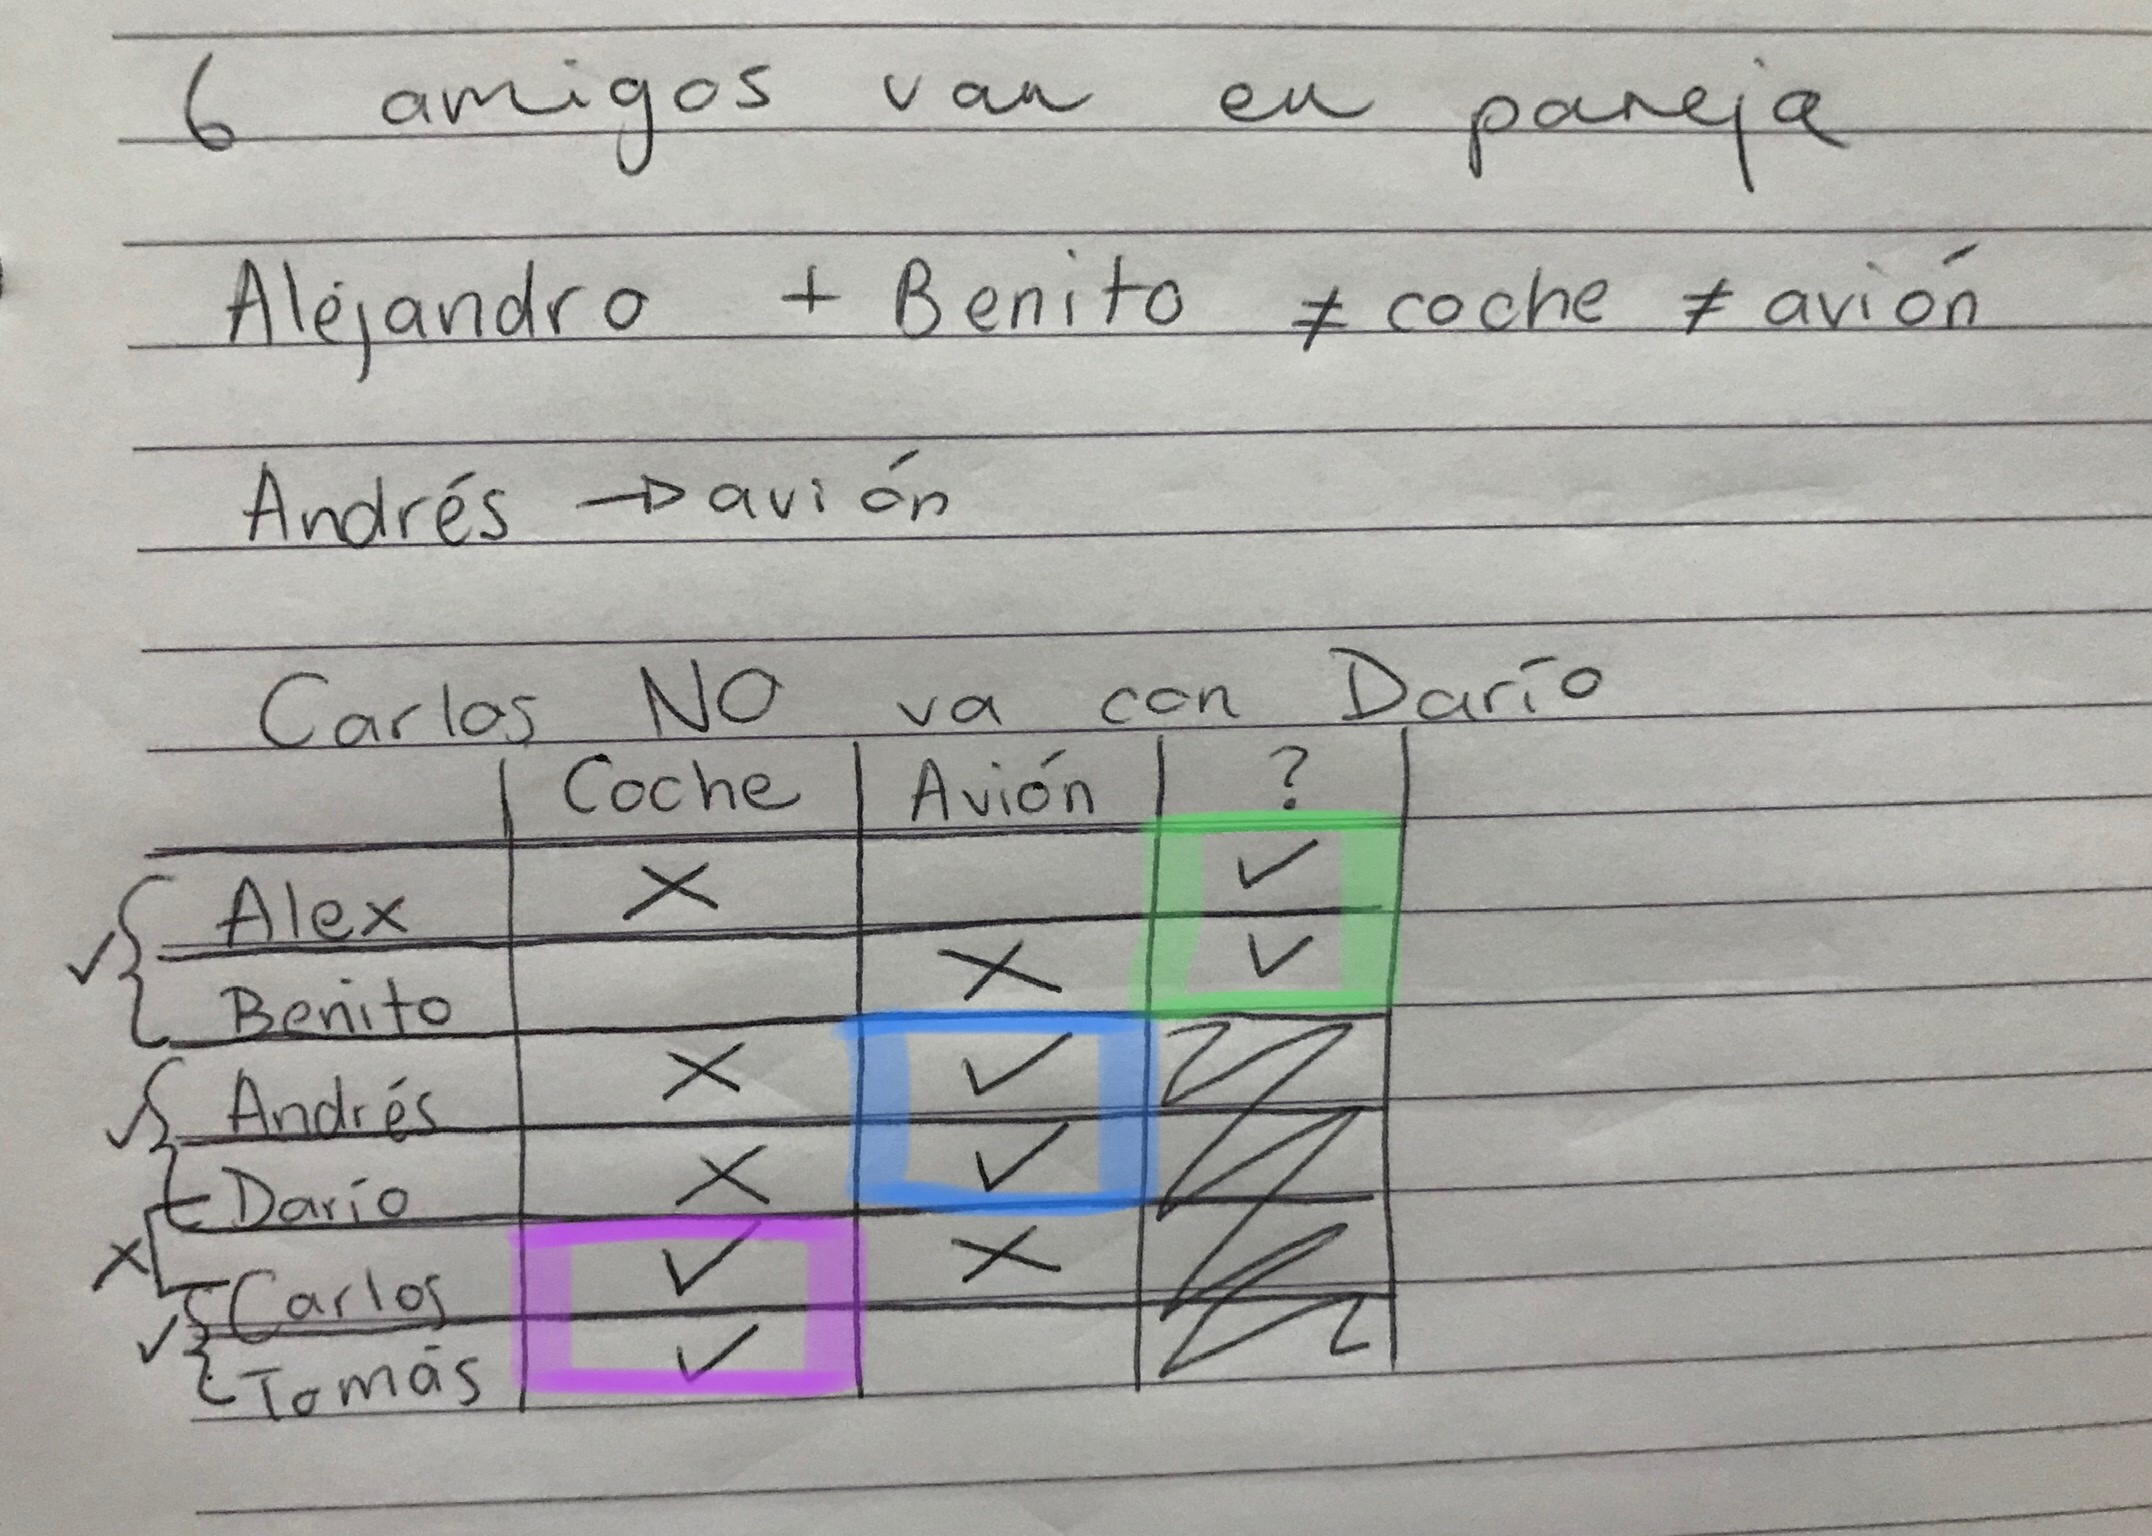 6 amigos van en pareja
Alejandro + Benito ≠ coche ≠ avión
Andrés → avión
Carlos NO va con Darío
Coche Avión ?
Alex X ✓
✓ Benito X ✓
✓ Andrés X ✓
Darío X ✓
X Carlos ✓ X
✓ Tomás ✓